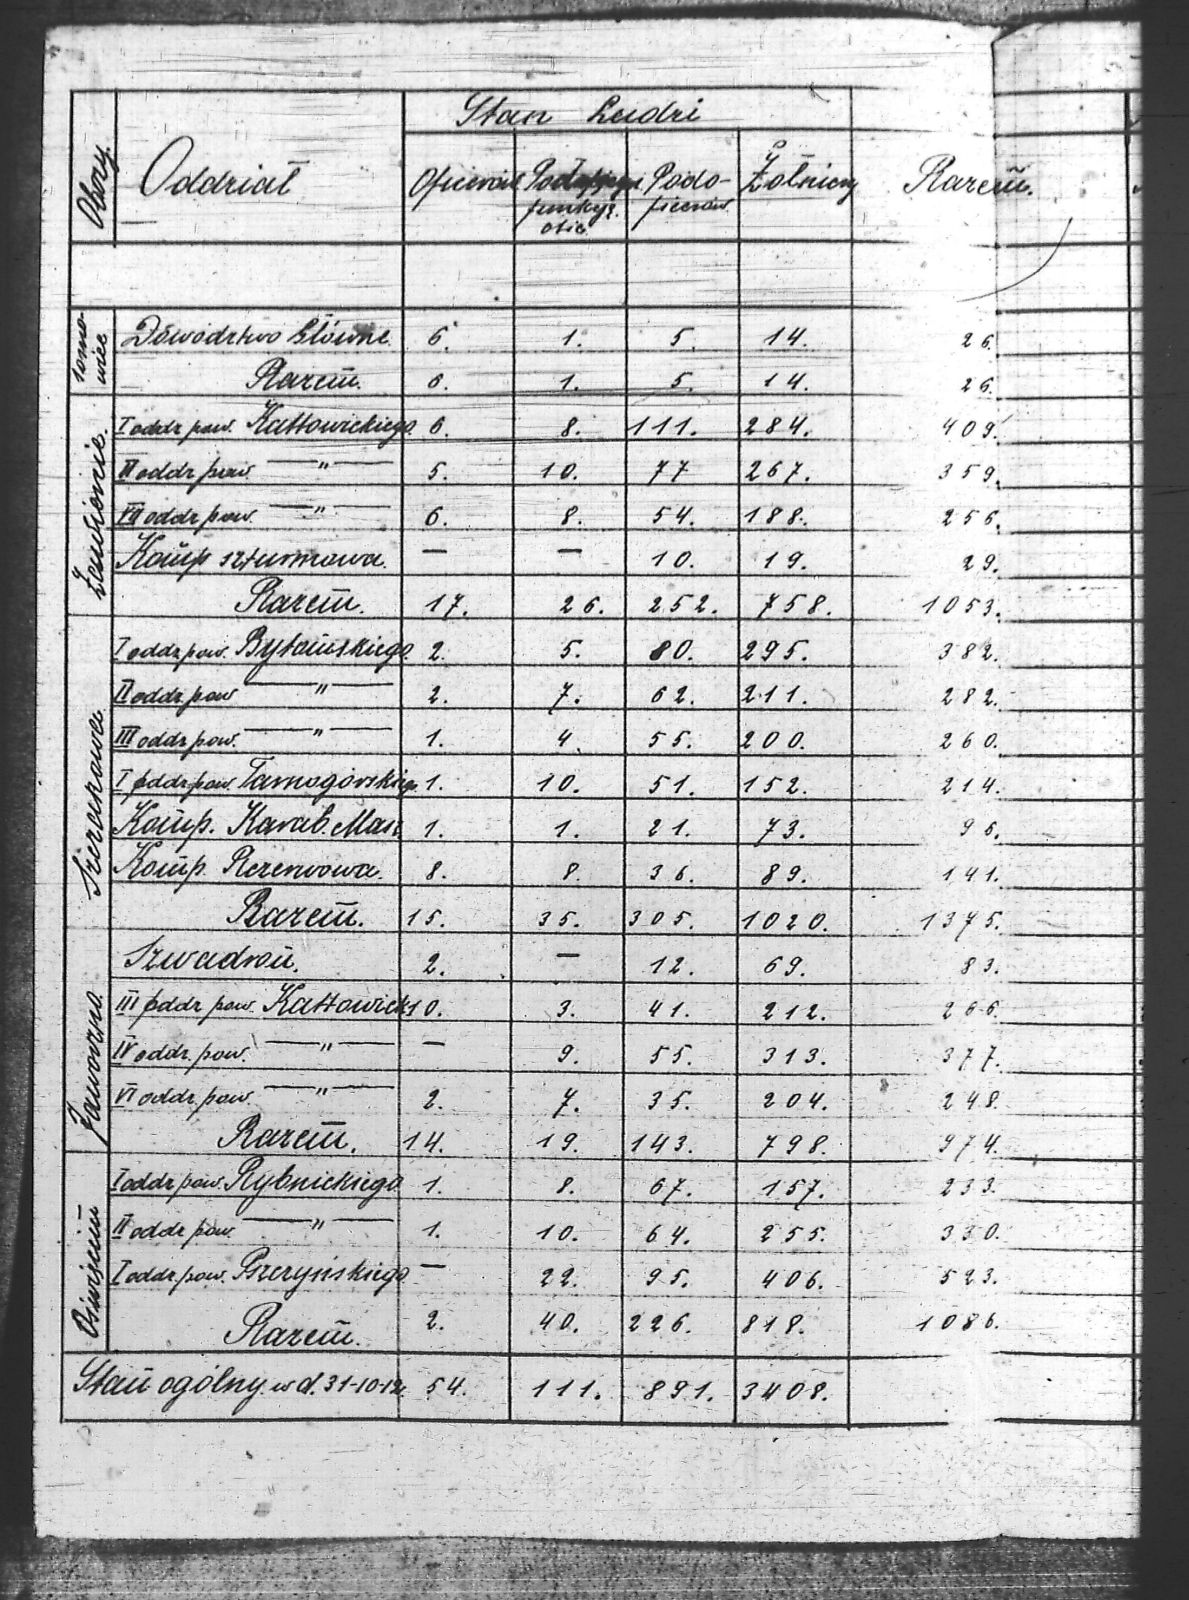 Stan Ludzi
Obozy. Oddział Oficerów funkcj. ofic. Podo- ficerów Żołnierzy Razem.
Dowództwo Główne. 6. 1. 5. 14. 26.
Razem. 6. 1. 5. 14. 26.
Ławiecie.
I oddz. pow. Kattowickiego. 6. 8. 111. 284. 409.
II oddz. pow. —"— 5. 10. 77 267. 359.
VII oddz. pow. —"— 6. 8. 54. 188. 256.
Komp. szturmowa. — — 10. 19. 29.
Razem. 17. 26. 252. 758. 1053.
Szczakowa
I oddz. pow. Bytomskiego. 2. 5. 80. 295. 382.
II oddz. pow —"— 2. 7. 62. 211. 282.
III oddz. pow. —"— 1. 4. 55. 200. 260.
I oddz. pow. Tarnogórskieg. 1. 10. 51. 152. 214.
Komp. Karab. Masz. 1. 1. 21. 73. 96.
Komp. Rezerwowa. 8. 8. 36. 89. 141.
Razem. 15. 35. 305. 1020. 1375.
Jaworzno.
Szwadron. 2. — 12. 69. 83.
III oddz. pow. Kattowick. 10. 3. 41. 212. 266.
IV oddz. pow. —"— — 9. 55. 313. 377.
VI oddz. pow. —"— 2. 7. 35. 204. 248.
Razem. 14. 19. 143. 798. 974.
Oświęcim
I oddz. pow. Rybnickiego 1. 8. 67. 157. 233.
II oddz. pow. —"— 1. 10. 64. 255. 330.
I oddz. pow. Pszczyńskiego — 22. 95. 406. 523.
Razem. 2. 40. 226. 818. 1086.
Stan ogólny w d. 31-10-19. 54. 111. 891. 3408.